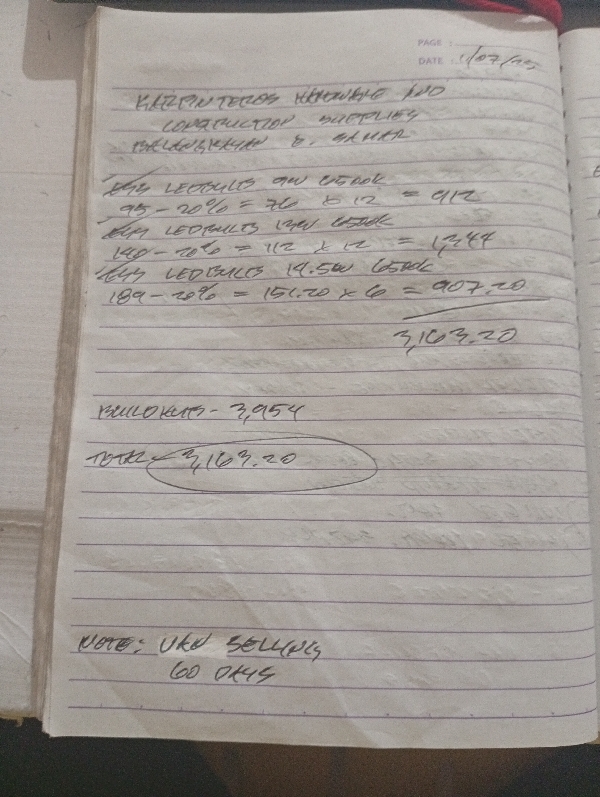 PAGE :
DATE : 1/07/25
KARPINTEROS HARDWARE AND
CONSTRUCTION SUPPLIES
BALANGKAYAN E. SAMAR
LEDBULBS 9W 6500K
95 - 20% = 76 x 12 = 912
LEDBULBS 13W 6500K
140 - 20% = 112 x 12 = 1,344
LEDBULBS 14.5W 6500K
189 - 20% = 151.20 x 6 = 907.20
3,163.20
- 3,954
TOTAL - 3,163.20
NOTE: VAN SELLING
60 DAYS